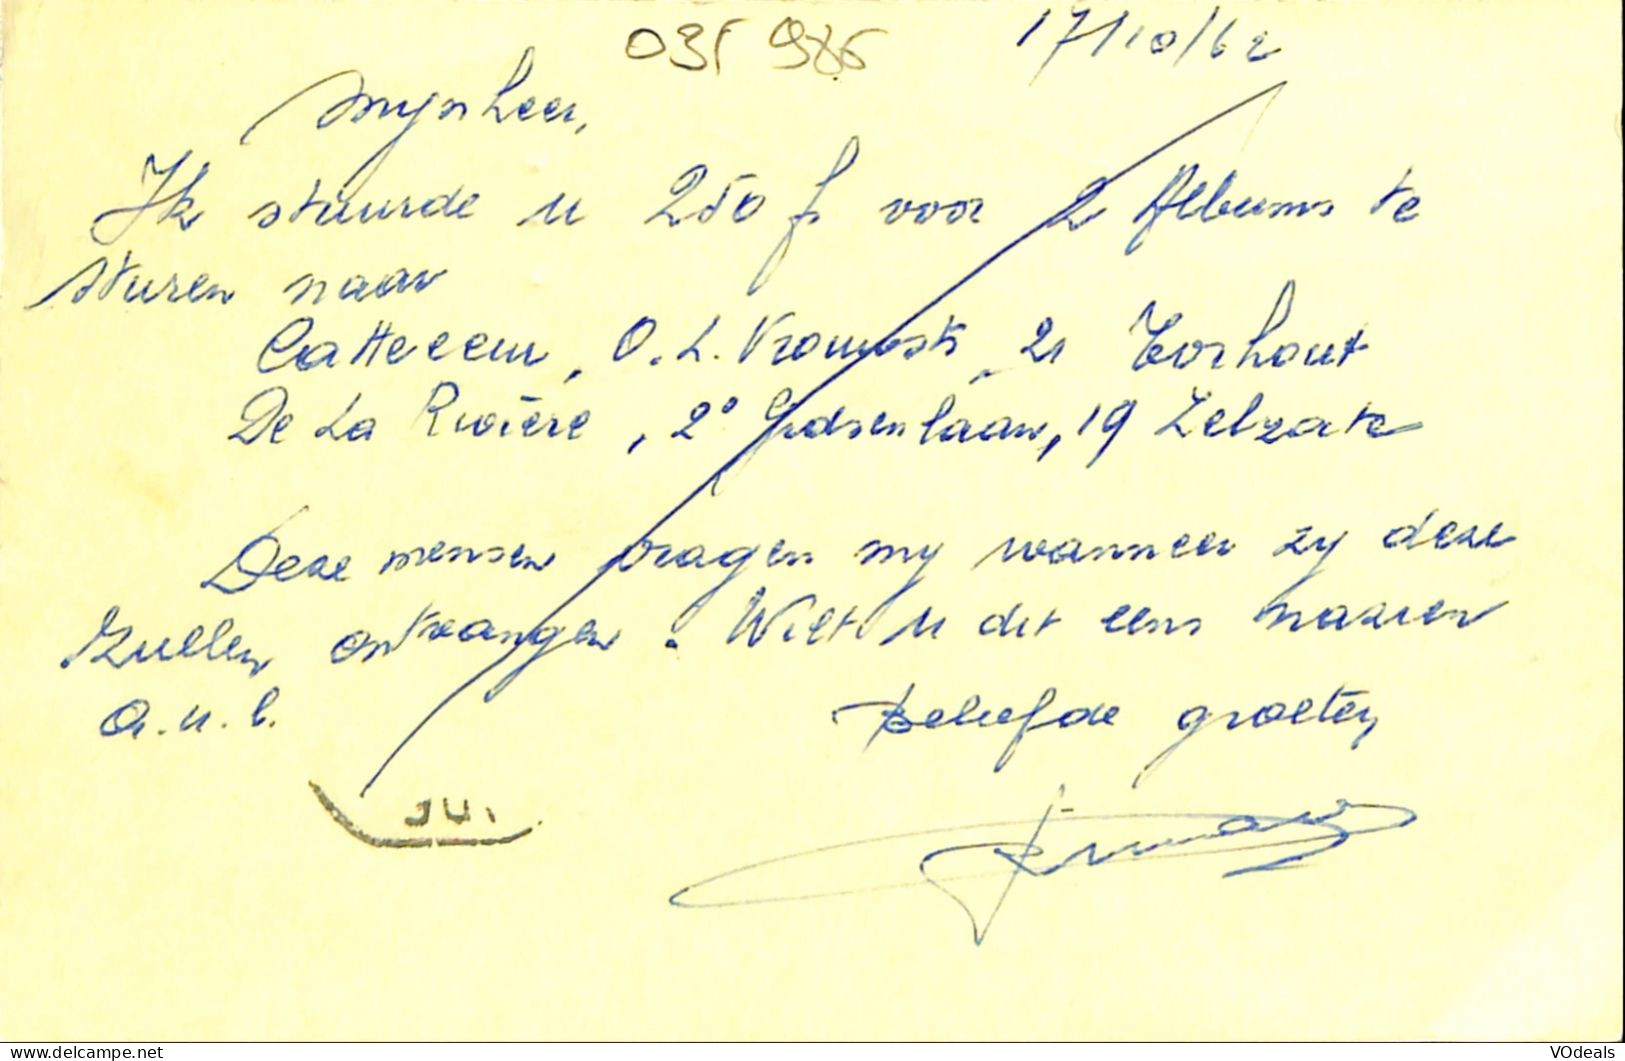 17/10/62
Mynheer,
Ik stuurde u 250 f voor 2 Albums te
sturen naar
O.L. Vrouwstr, 21 Torhout
De La Rivière, 2° laan, 19 Zelzate
Deze mensen vragen my wanneer zy deze
zullen ontvangen. Wilt u dit eens nazien
a.u.b.
Beleefde groeten
delcampe.net
VOdeals